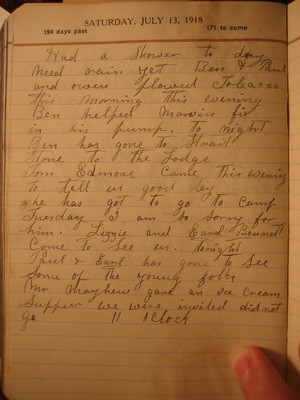 SATURDAY, JULY 13, 1918
194 days past 171 to come
Had a Shower to day
need rain yet Ben & Paul
and owen plowed Tobacco
this morning this evening
Ben helped Marvin fix
in his pump. to night
Ben has gone to Strait
Stone to the Lodge
Tom Edmons Came this evening
to tell us good by
he has got to go to Camp
Tuesday I am so Sorry for
him. Lizzie and Earl Bennett
Come to See us. tonight
Paul & Earl has gone to See
Some of the young folks
Mr Mayhew gave an ice cream
Supper we were invited did not
go 11 oClock